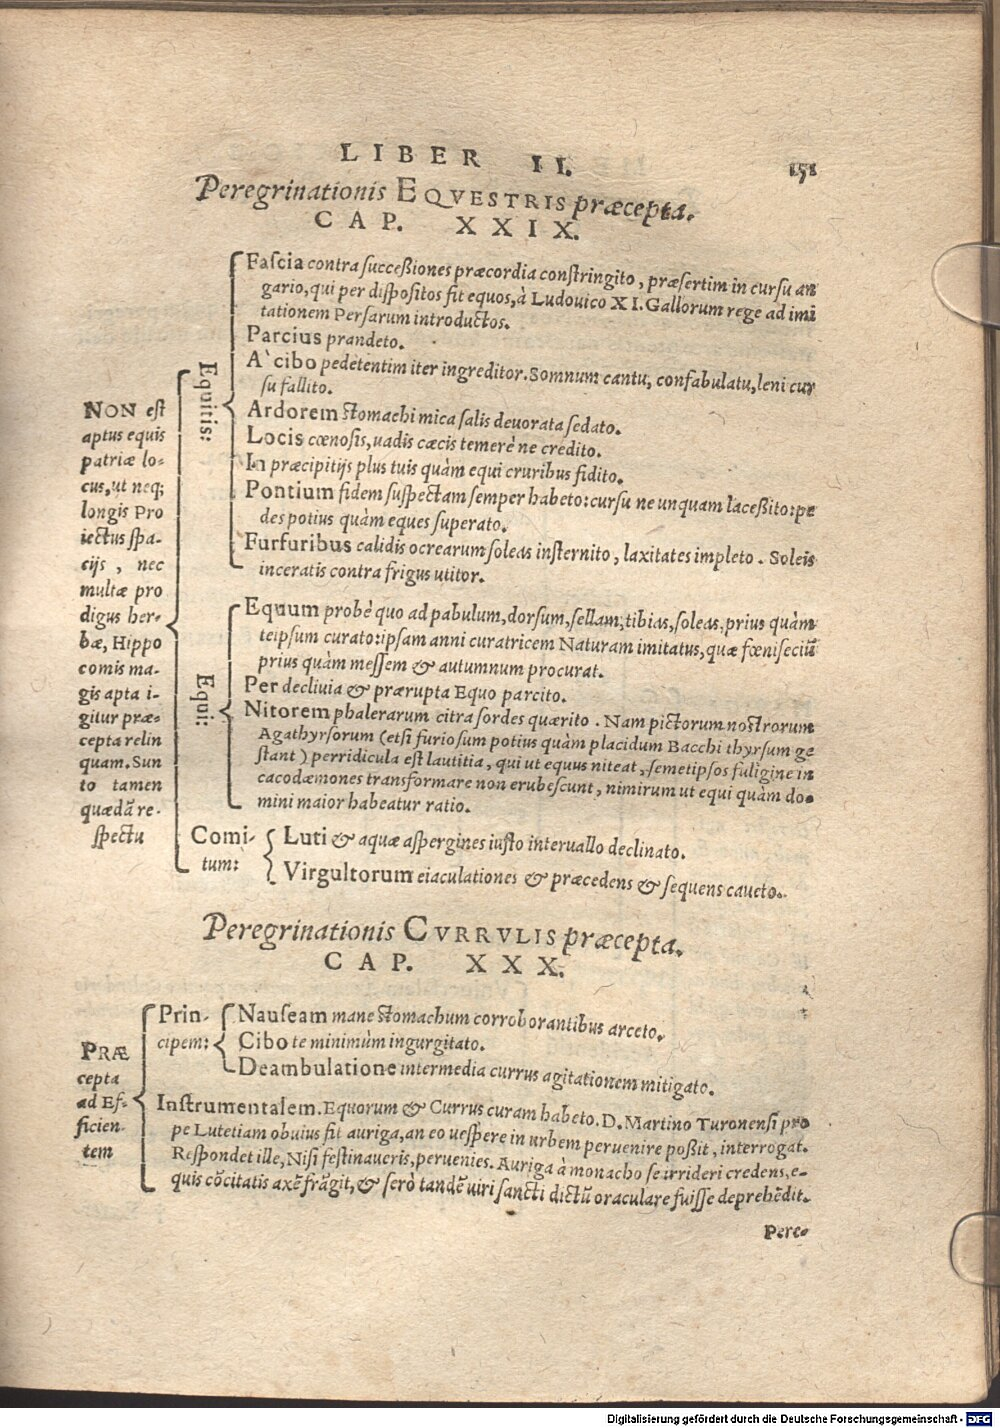 LIBER II. 151
Peregrinationis EQVESTRIS præcepta.
CAP. XXIX.
NON est
aptus equis
patriæ lo-
cus, ut neq;
longis Pro
iectus spa-
cijs , nec
multæ pro
digus her-
bæ, Hippo
comis ma-
gis apta i-
gitur præ-
cepta relin
quam. Sun
to tamen
quædã re-
spectu
Equitis:
Fascia contra successiones præcordia constringito, præsertim in cursu an
gario, qui per dispositos fit equos, à Ludouico XI. Gallorum rege ad imi
tationem Persarum introductos.
Parcius prandeto.
A` cibo pedetentim iter ingreditor. Somnum cantu, confabulatu, leni cur
su fallito.
Ardorem stomachi mica salis deuorata sedato.
Locis cœnosis, uadis cæcis temerè ne credito.
In præcipitijs plus tuis quàm equi cruribus fidito.
Pontium fidem suspectam semper habeto: cursu ne unquam lacessito: pe
des potius quàm eques superato.
Furfuribus calidis ocrearum soleas insternito, laxitates impleto. Soleis
inceratis contra frigus utitor.
Equi:
Equum probè quo ad pabulum, dorsum, sellam, tibias, soleas, prius quàm
teipsum curato: ipsam anni curatricem Naturam imitatus, quæ fœniseciũ
prius quàm messem & autumnum procurat.
Per decliuia & prærupta Equo parcito.
Nitorem phalerarum citra sordes quærito. Nam pictorum nostrorum
Agathyrsorum (etsi furiosum potius quàm placidum Bacchi thyrsum ge
stant) perridicula est lautitia, qui ut equus niteat, semetipsos fuligine in
cacodæmones transformare non erubescunt, nimirum ut equi quàm do-
mini maior habeatur ratio.
Comi-
tum:
Luti & aquæ aspergines iusto interuallo declinato.
Virgultorum eiaculationes & præcedens & sequens caueto.
Peregrinationis CVRRVLIS præcepta.
CAP. XXX.
PRÆ
cepta
ad Ef-
ficien-
tem
Prin-
cipem:
Nauseam mane stomachum corroborantibus arceto.
Cibo te minimùm ingurgitato.
Deambulatione intermedia currus agitationem mitigato.
Instrumentalem. Equorum & Currus curam habeto. D. Martino Turonensi pro
pe Lutetiam obuius fit auriga, an eo uespere in urbem peruenire possit, interrogat.
Respondet ille, Nisi festinaueris, peruenies. Auriga à monacho se irrideri credens, e-
quis cõcitatis axẽ frãgit, & serò tandẽ uiri sancti dictũ oraculare fuisse deprehẽdit.
Pere-
Digitalisierung gefördert durch die Deutsche Forschungsgemeinschaft - DFG